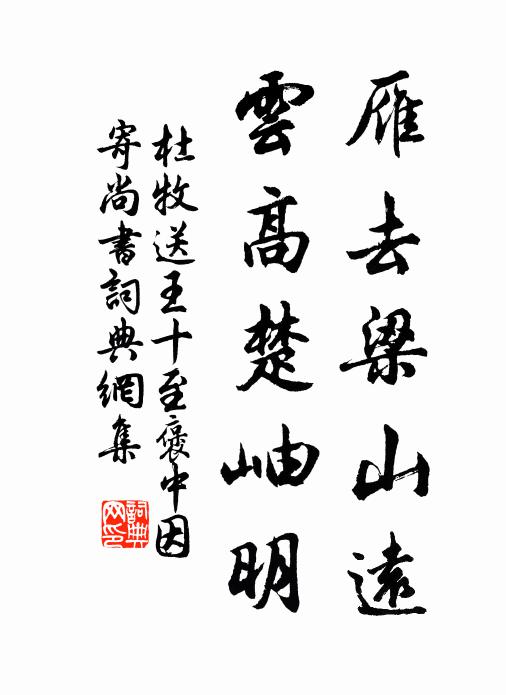 雁去梁山遠
雲高楚岫明
杜牧送王十至褒中因
寄尚書詞典網集
詞典
网印